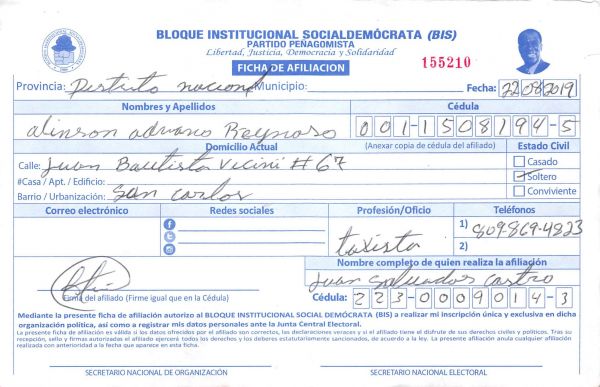 BLOQUE INSTITUCIONAL SOCIALDEMÓCRATA (BIS)
PARTIDO PEÑAGOMISTA
Libertad, Justicia, Democracia y Solidaridad
FICHA DE AFILIACION
155210
Provincia: Distrito nacional Municipio: Fecha: 22/08/2019
Nombres y Apellidos Cédula
alinson adriano Reynoso 001-1508194-5
Domicilio Actual (Anexar copia de cédula del afiliado) Estado Civil
Calle: Juan Bautista Vicini # 67 Casado
#Casa / Apt. / Edificio: Soltero
Barrio / Urbanización: San Carlos Conviviente
Correo electrónico Redes sociales Profesión/Oficio Teléfonos
taxista 1) 809-869-4823
2)
Nombre completo de quien realiza la afiliación
Juan Salvador Castro
Firma del afiliado (Firme igual que en la Cédula) Cédula: 223-0009014-3
Mediante la presente ficha de afiliación autorizo al BLOQUE INSTITUCIONAL SOCIAL DEMÓCRATA (BIS) a realizar mi inscripción única y exclusiva en dicha
organización política, así como a registrar mis datos personales ante la Junta Central Electoral.
La presente ficha de afiliación es válida si los datos ofrecidos por el afiliado son correctos, las declaraciones veraces y si el afiliado tiene el disfrute de sus derechos civiles y políticos. Tras su
recepción, sello y firmas autorizadas el afiliado ejercerá todos los derechos y los deberes estatutariamente sancionados, de acuerdo a la ley. La presente afiliación anula cualquier afiliación
realizada con anterioridad a la fecha que aparece en esta ficha.
SECRETARIO NACIONAL DE ORGANIZACIÓN SECRETARIO NACIONAL ELECTORAL